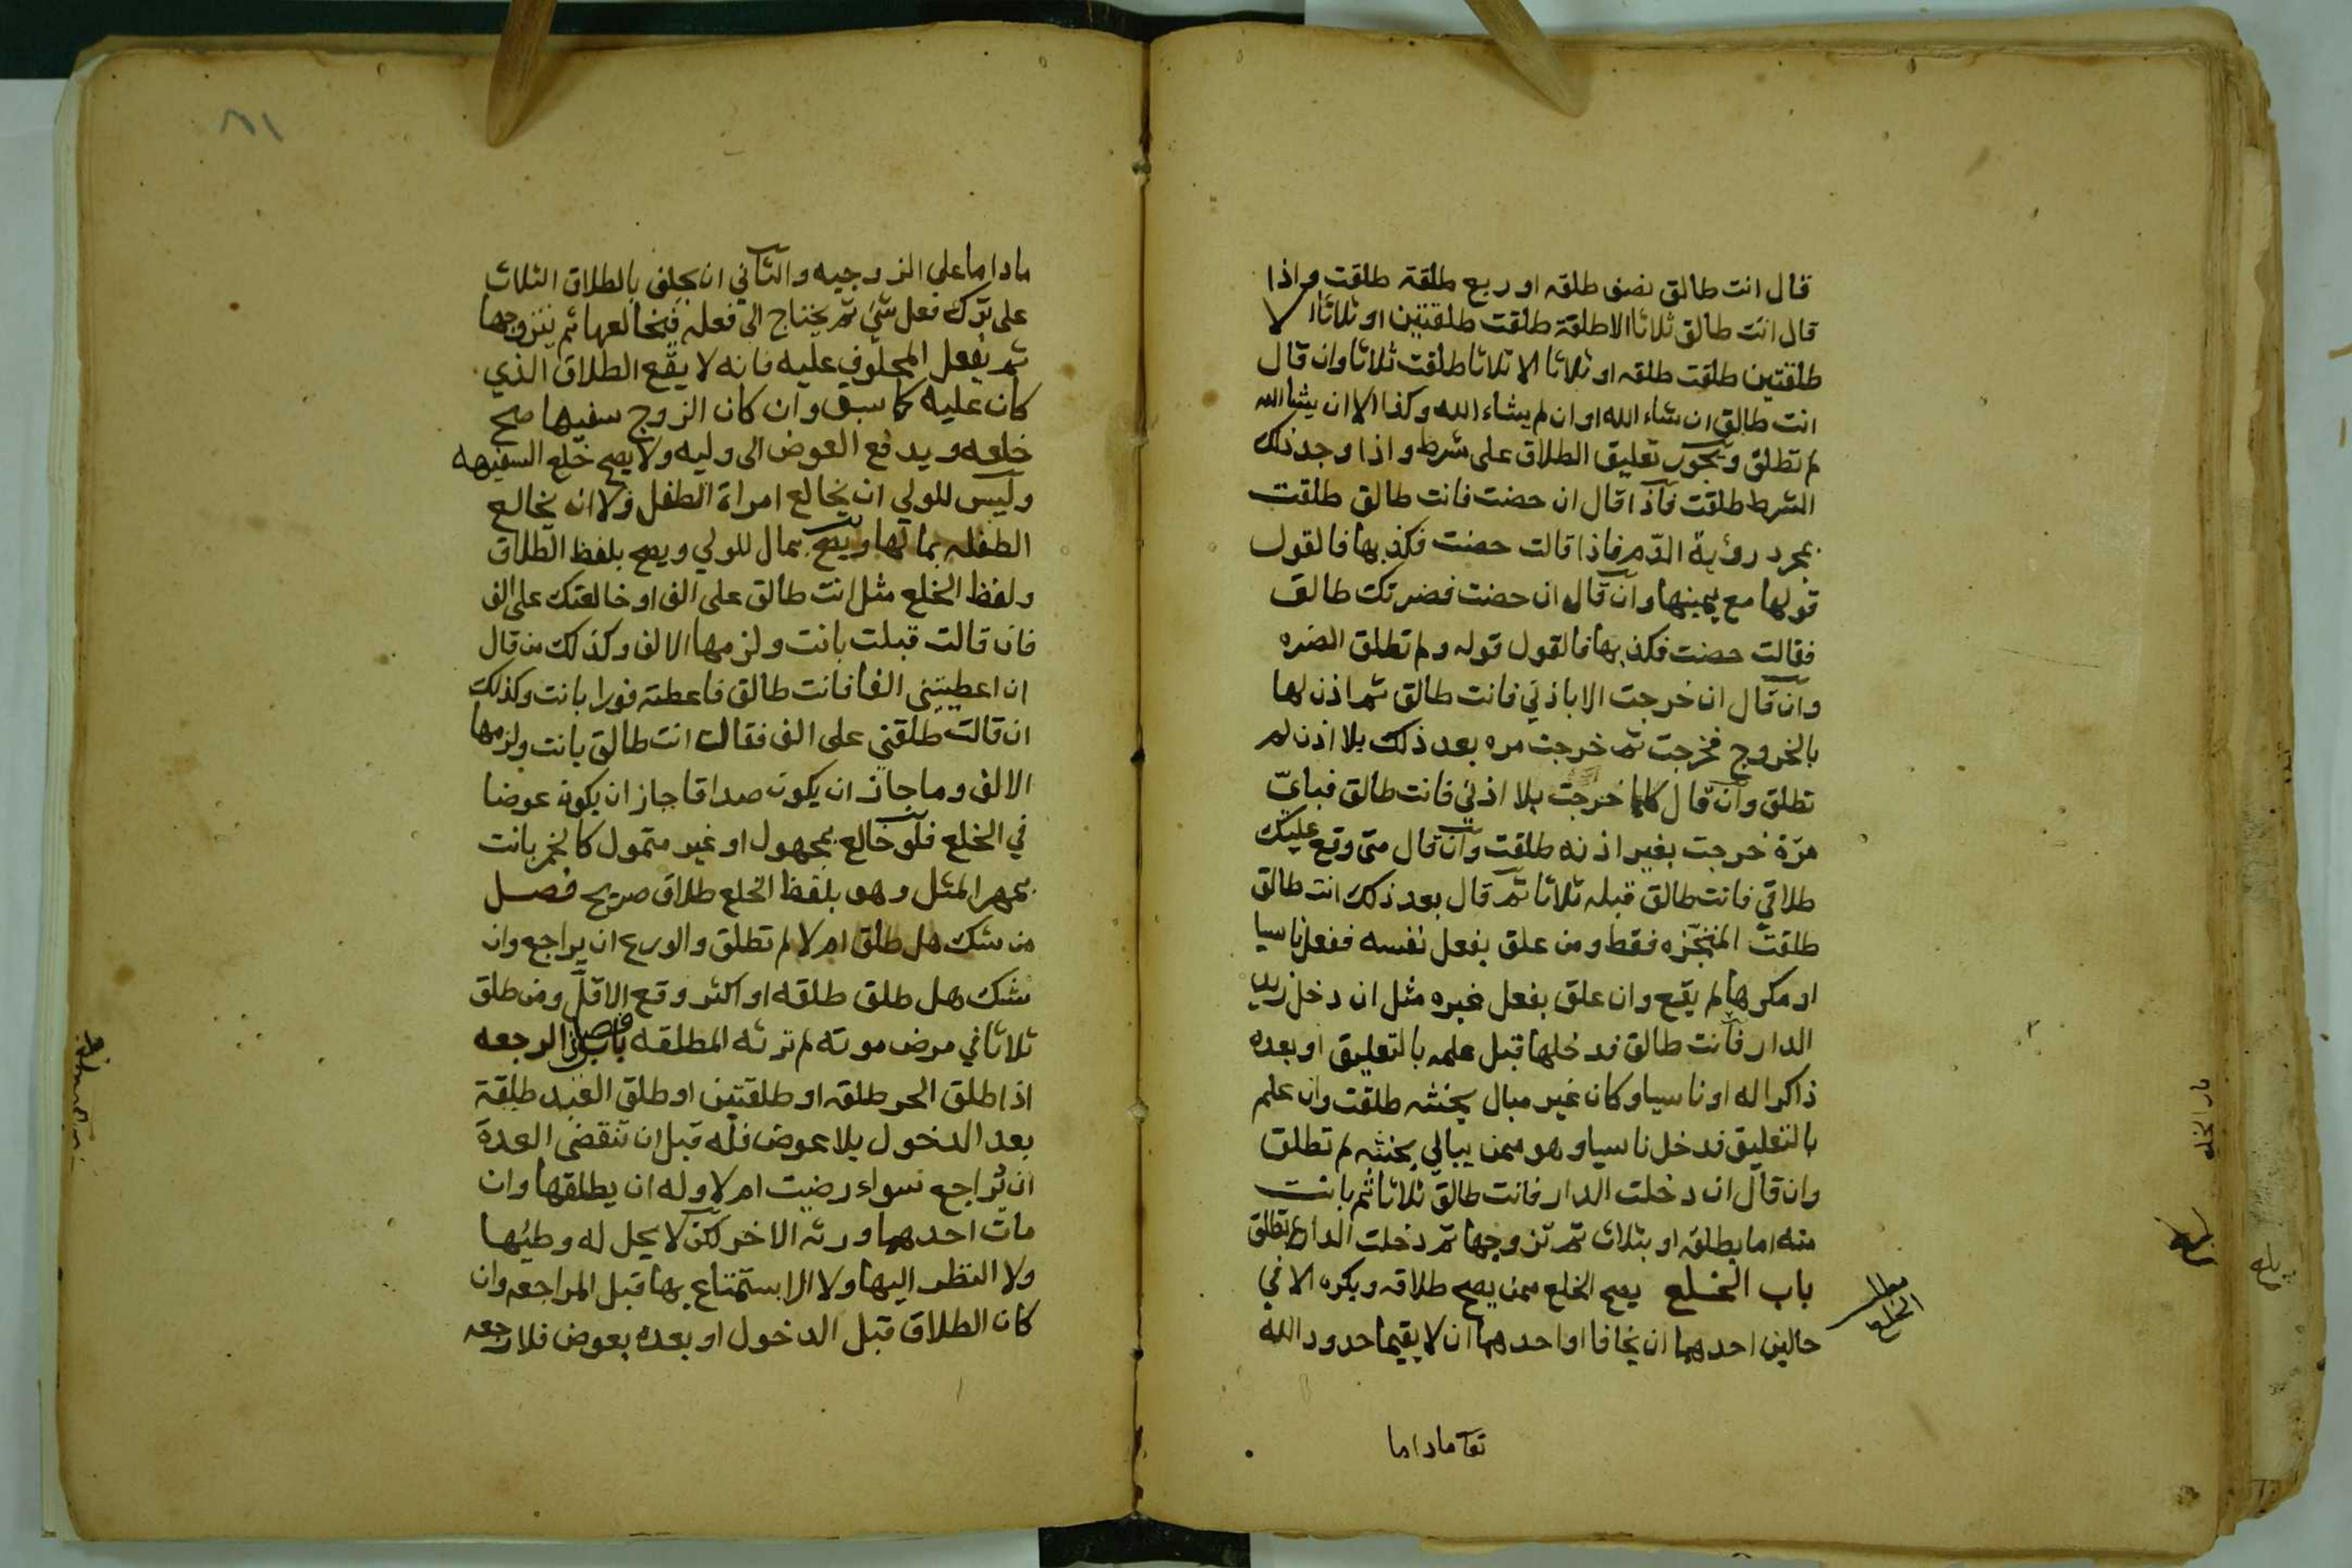 قال انت طالق نصف طلقه او ربع طلقة طلقت واذا
قال انت طالق ثلاثا الا طلقة طلقت طلقتين او ثلاثا الا
طلقتين طلقت طلقه او ثلاثا الا ثلاثا طلقت ثلاثا وان قال
انت طالق ان شاء الله او ان لم يشاء الله وكذا الا ان يشا الله
لم تطلق ويجوز تعليق الطلاق على شرط واذا وجد ذلك
الشرط طلقت فاذا قال ان حضت فانت طالق طلقت
بمجرد رؤية الدم فاذا قالت حضت فكذبها فالقول
قولها مع يمينها وان قال ان حضت فضرتك طالق
فقالت حضت فكذبها فالقول قوله ولم تطلق الضره
وان قال ان خرجت الا باذني فانت طالق ثم اذن لها
بالخروج فخرجت ثم خرجت مره بعد ذلك بلا اذن لم
تطلق وان قال كلما خرجت بلا اذني فانت طالق فباي
مرة خرجت بغير اذنه طلقت وان قال متى وقع عليك
طلاقي فانت طالق قبله ثلاثا ثم قال بعد ذلك انت طالق
طلقت المنجزه فقط ومن علق بفعل نفسه ففعل ناسيا
او مكرها لم يقع وان علق بفعل غيره مثل ان دخل زيد
الدار فانت طالق فدخلها قبل علمه بالتعليق او بعده
ذاكرا له او ناسيا وكان غير مبال بحنثه طلقت وان علم
بالتعليق فدخل ناسيا وهو ممن يبالي بحنثه لم تطلق
وان قال ان دخلت الدار فانت طالق ثلاثا ثم بانت
منه اما بطلقه او بثلاث ثم تزوجها ثم دخلت الدار لم تطلق
باب الخلع يصح الخلع ممن يصح طلاقه ويكره الا في
حالين احدهما ان يخافا او احدهما ان لا يقيما حدود الله
ماداما
الخلع
ماداما على الزوجيه والثاني ان يحلف بالطلاق الثلاث
على ترك فعل شئ ثم يحتاج الى فعله فيخالعها ثم يتزوجها
ثم يفعل المحلوف عليه فانه لا يقع الطلاق الذي
كان عليه كما سبق وان كان الزوج سفيها صح
خلعه ويدفع العوض الى وليه ولا يصح خلع السفيهه
وليس للولي ان يخالع امراة الطفل ولا ان يخالع
الطفله بمالها ويصح بمال للولي ويصح بلفظ الطلاق
ولفظ الخلع مثل انت طالق على الف او خالعتك على الف
فان قالت قبلت بانت ولزمها الالف وكذلك من قال
ان اعطيتني الفا فانت طالق فاعطته فورا بانت وكذلك
ان قالت طلقني على الف فقال انت طالق بانت ولزمها
الالف وما جاز ان يكون صداقا جاز ان يكون عوضا
في الخلع فلو خالع بمجهول او غير متمول كالخمر بانت
بمهر المثل وهو بلفظ الخلع طلاق صريح فصل
من شك هل طلق ام لا لم تطلق والورع ان يراجع وان
شك هل طلق طلقه او اكثر وقع الاقل ومن طلق
ثلاثا في مرض موته لم ترثه المطلقه باب الرجعه
اذا طلق الحر طلقه او طلقتين او طلق العبد طلقة
بعد الدخول بلا عوض فله قبل ان تنقضي العدة
ان يراجع سواء رضيت ام لا وله ان يطلقها وان
مات احدهما ورثه الاخر لكن لا يحل له وطيها
ولا النظر اليها ولا الاستمتاع بها قبل المراجعه وان
كان الطلاق قبل الدخول او بعده بعوض فلا رجعه